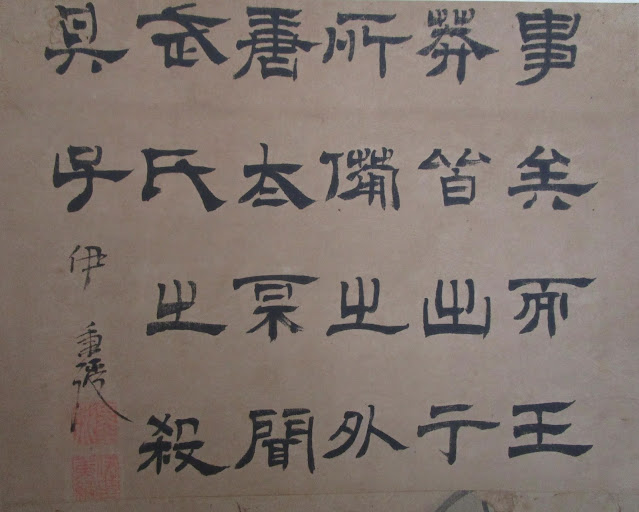 事矣而王
莽皆出于
所備之外
唐太宗聞
武氏之殺
其子
伊秉綬